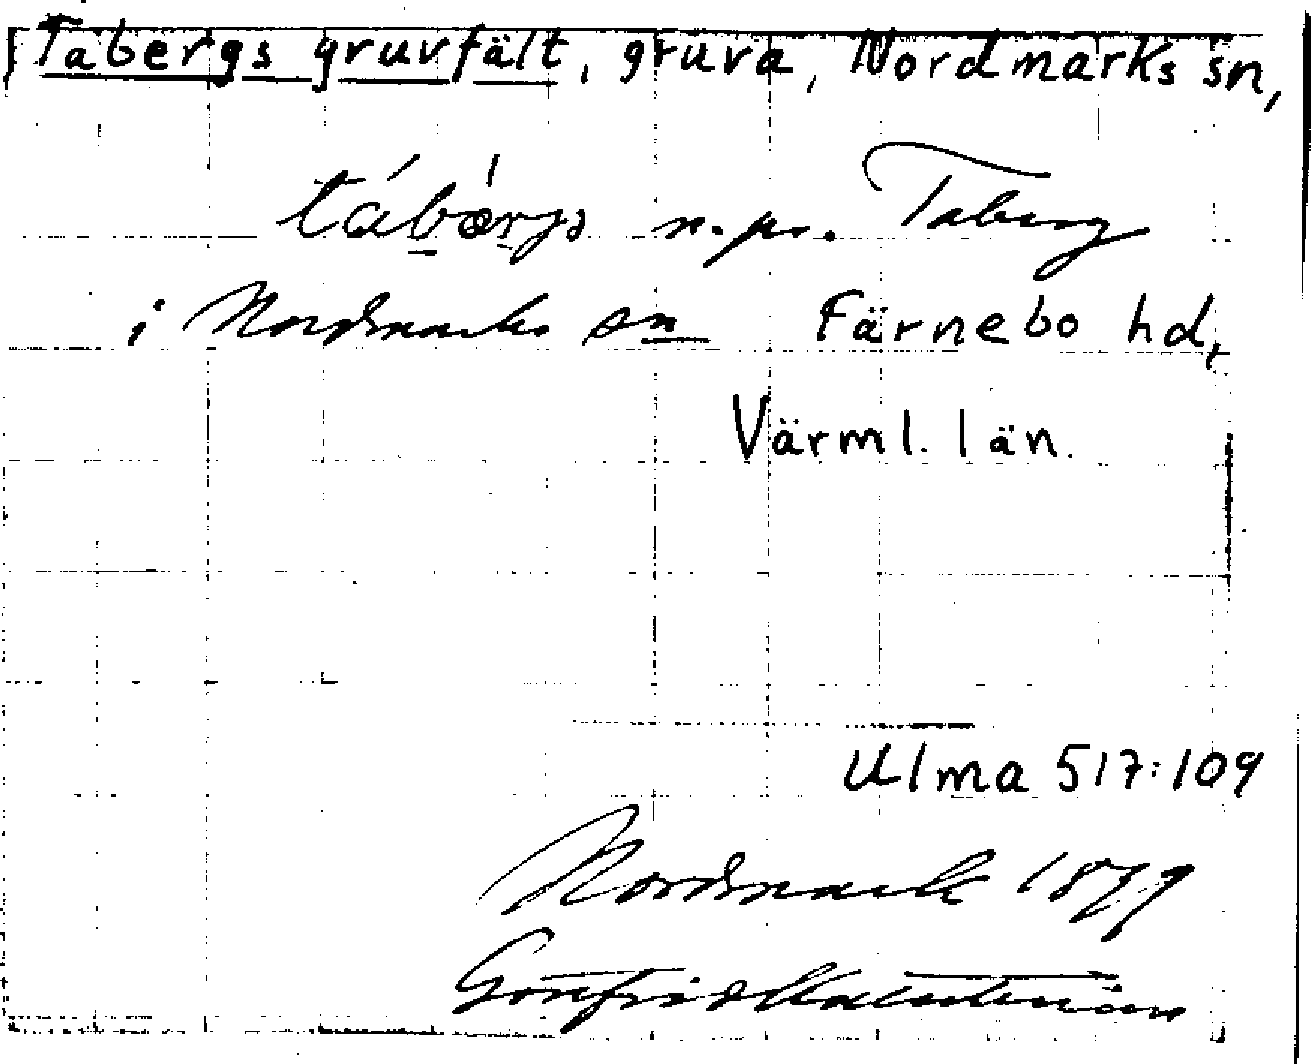 Tabergs gruvfält, gruva, Nordmarks sn,
tábǽrjs n. pr. Taberg
i Nordmarks sn Färnebo hd,
Värml. län.
Ulma 517:109
Nordmark 1879
Gottfrid Kallstenius